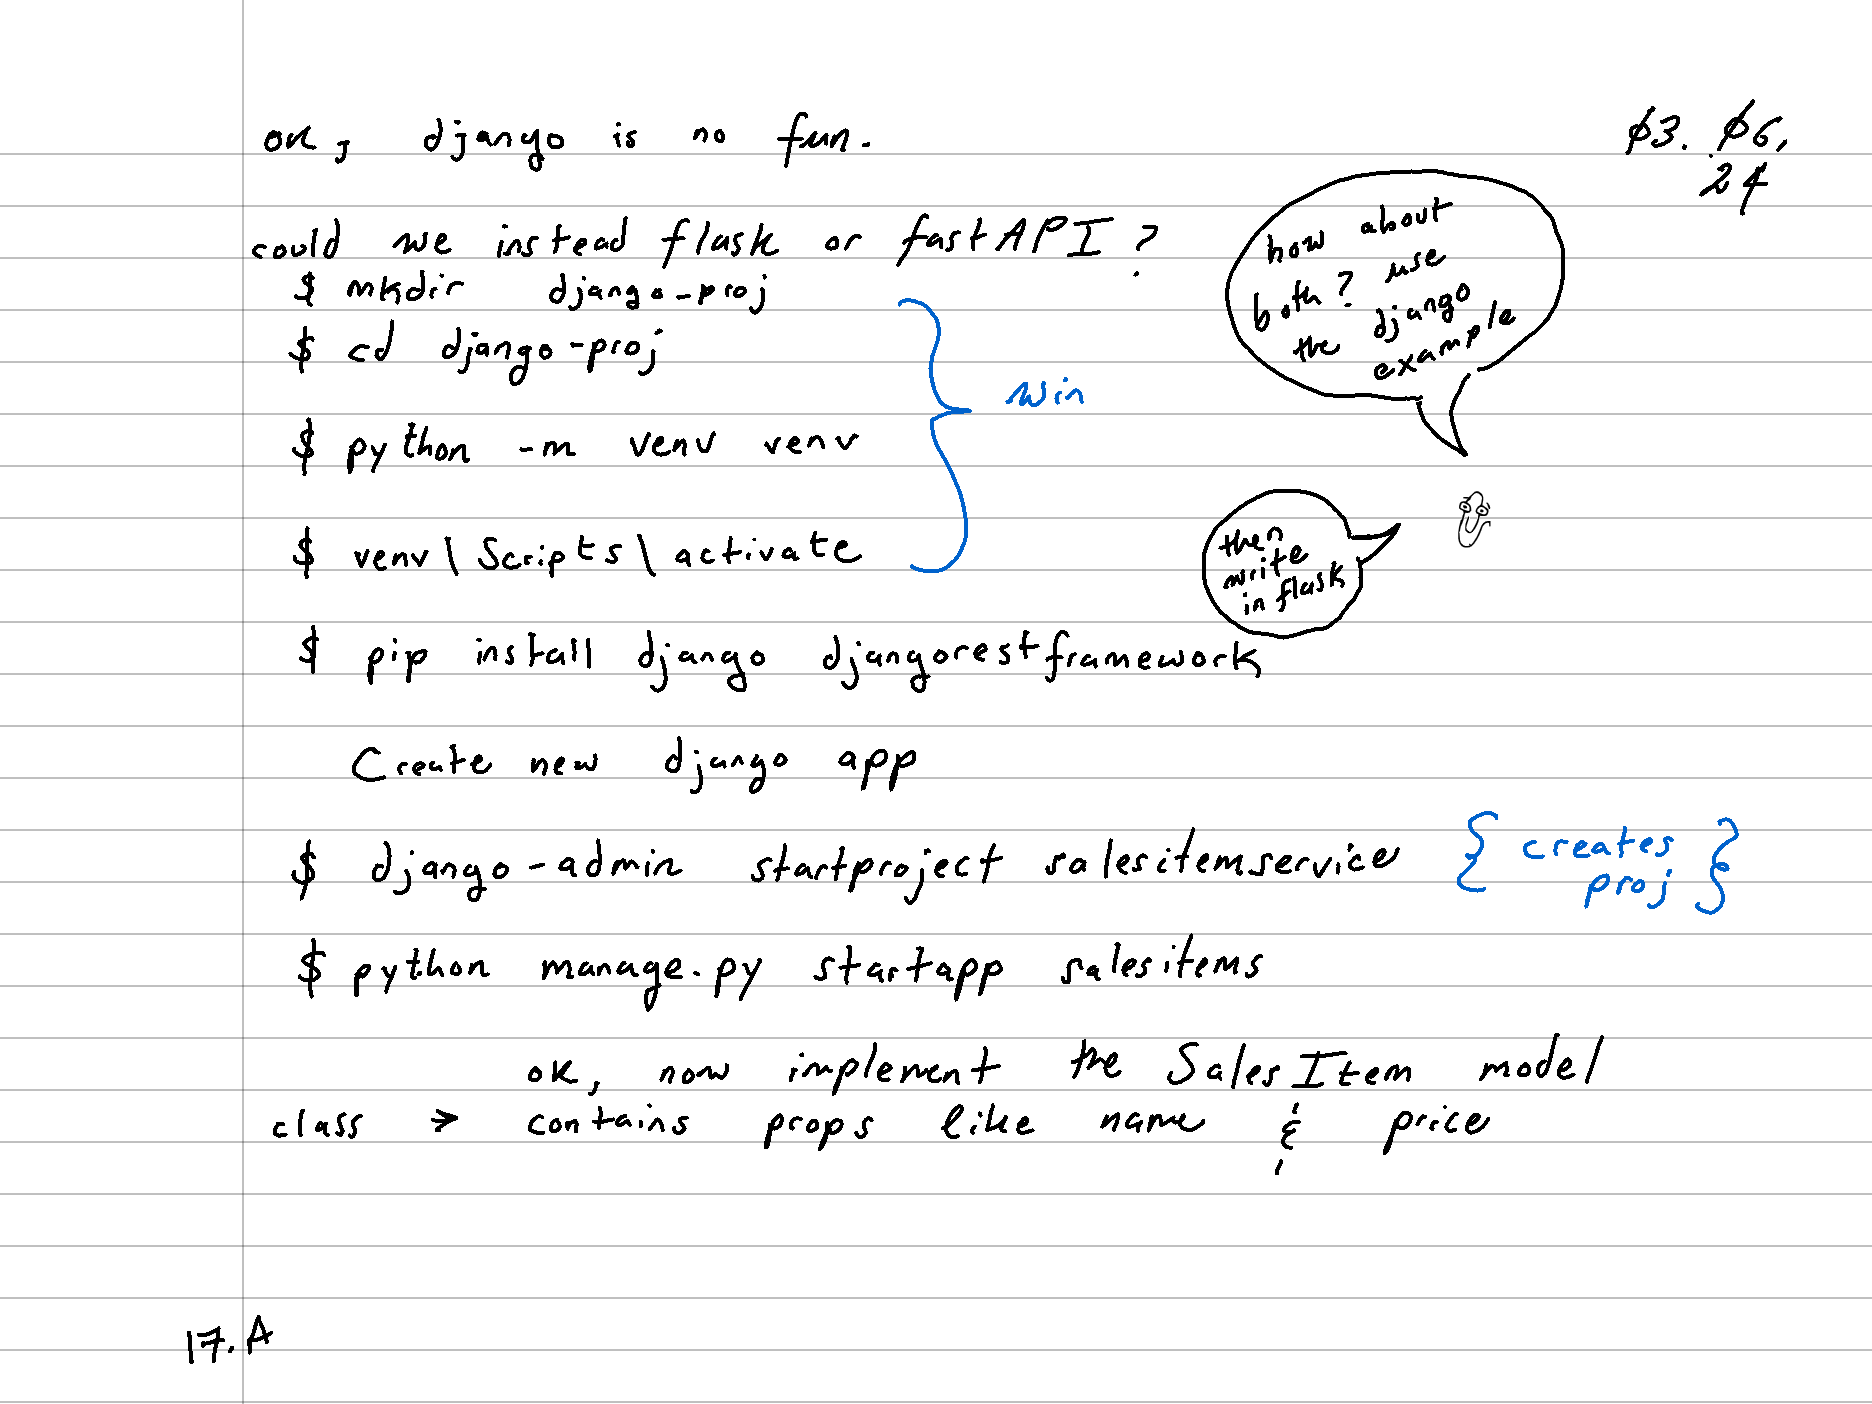 ok, django is no fun.
03. 06.
24
could we instead flask or fastAPI ?
how about
both? use
the django
example
$ mkdir django-proj
$ cd django-proj
win
$ python -m venv venv
then
write
in flask
$ venv\Scripts\activate
$ pip install django djangorestframework
Create new django app
$ django-admin startproject salesitemservice { creates
proj }
$ python manage.py startapp salesitems
ok, now implement the SalesItem model
class → contains props like name & price
17.A